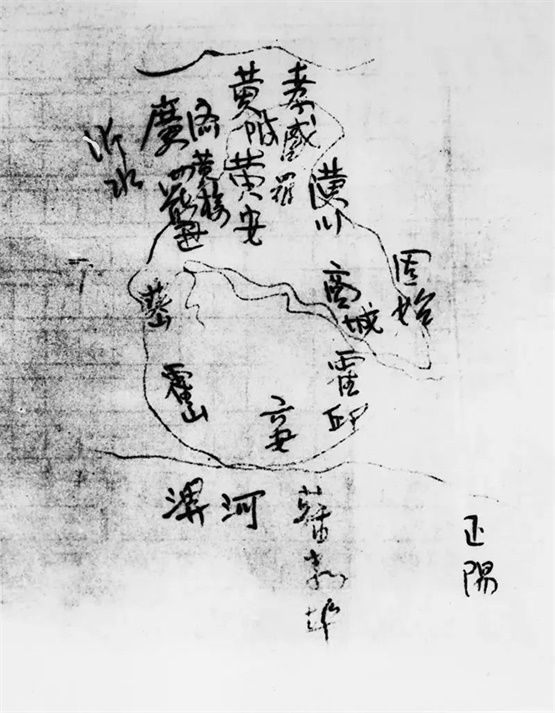 孝感
黄陂
黄安
潢川
廣济
黄梅
沂水
固始
商城
英山
霍山
霍邱
六安
淠河
蘇家埠
正陽